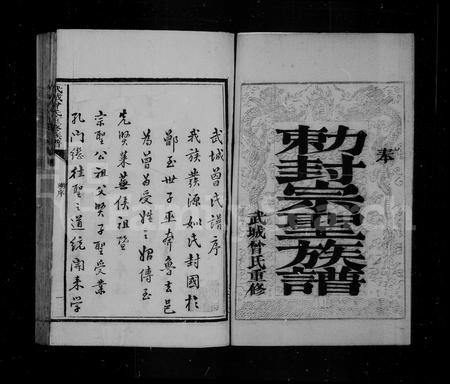 奉
勅封宗聖族譜
武城曾氏重修
武城曾氏譜序
我族發源姒氏封國於
鄫至世子巫奔魯去邑
為曾為受姓之始傳至
先賢萊蕪侯祖暨
宗聖公祖父賢子聖受業
孔門繼往聖之道統開來學